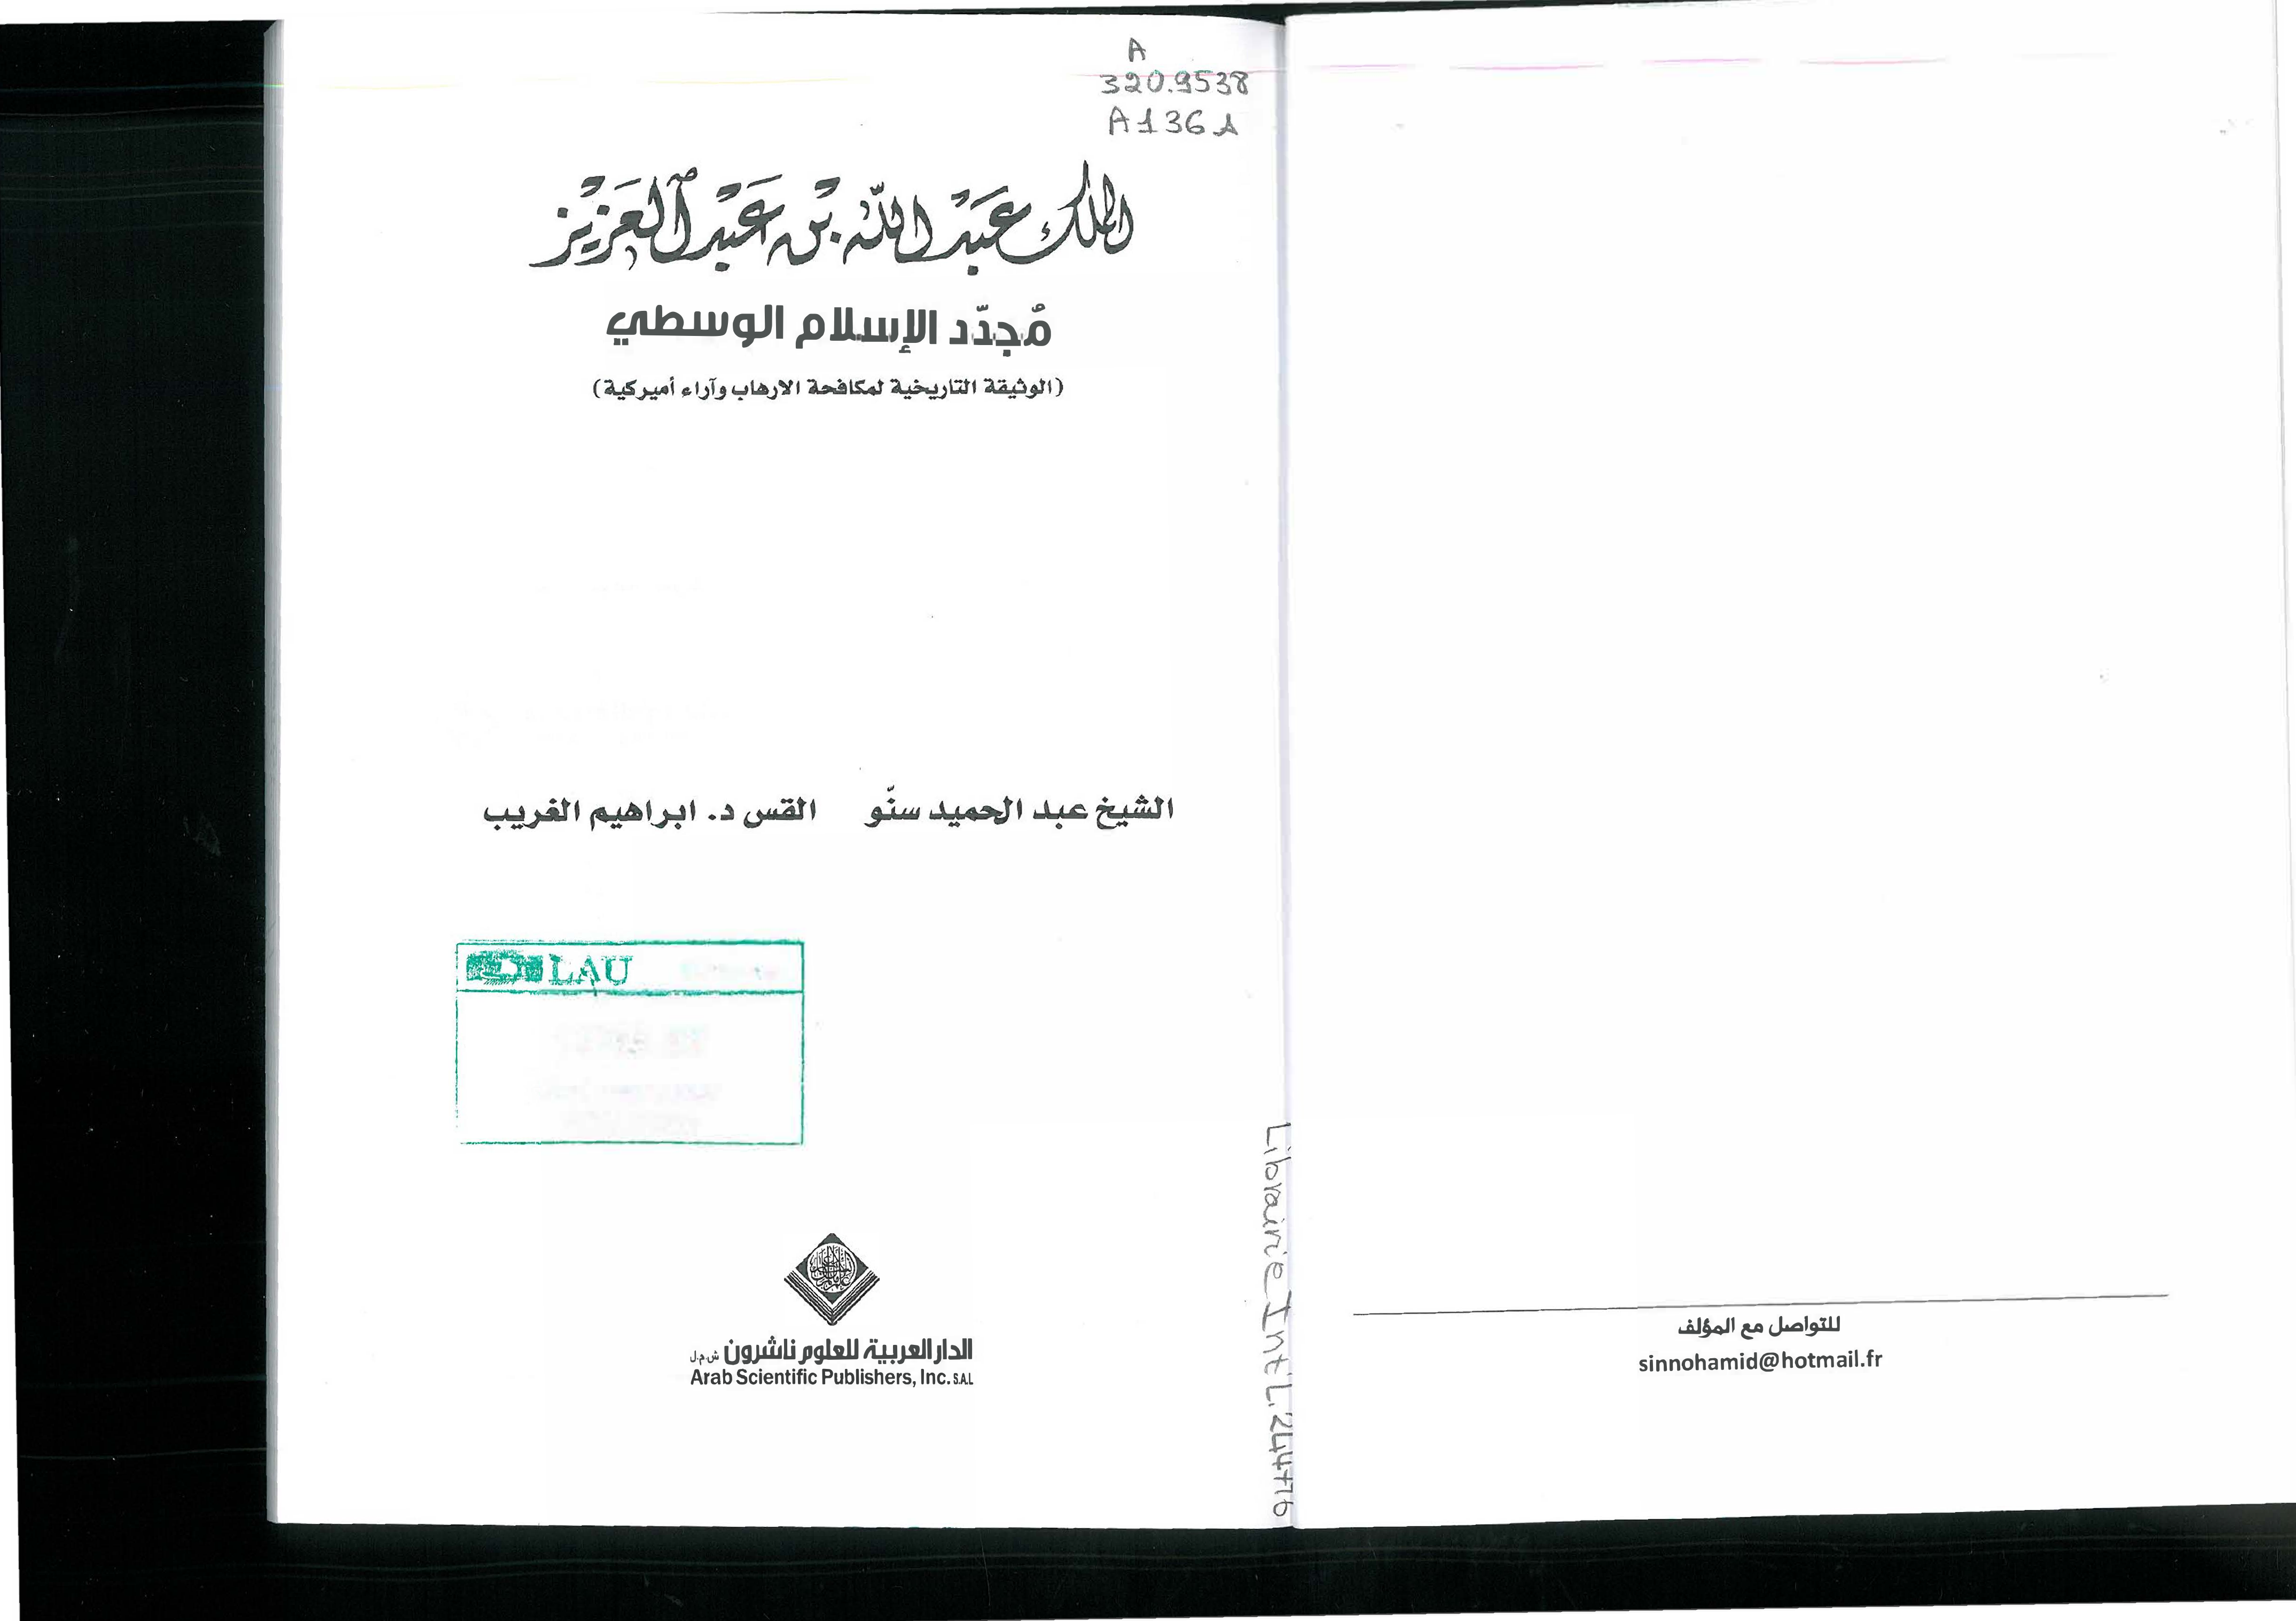 A
320.9538
A136A
الملك عَبْد اللّه بْن عَبْد العَزيْز
مُجدّد الإسلام الوسطي
(الوثيقة التاريخية لمكافحة الارهاب وآراء أميركية)
الشيخ عبد الحميد سنّو القس د. ابراهيم الغريب
LAU
الدار العربية للعلوم ناشرون ش.م.ل
Arab Scientific Publishers, Inc. S.A.L
Librairie Int L.
للتواصل مع المؤلف
sinnohamid@hotmail.fr